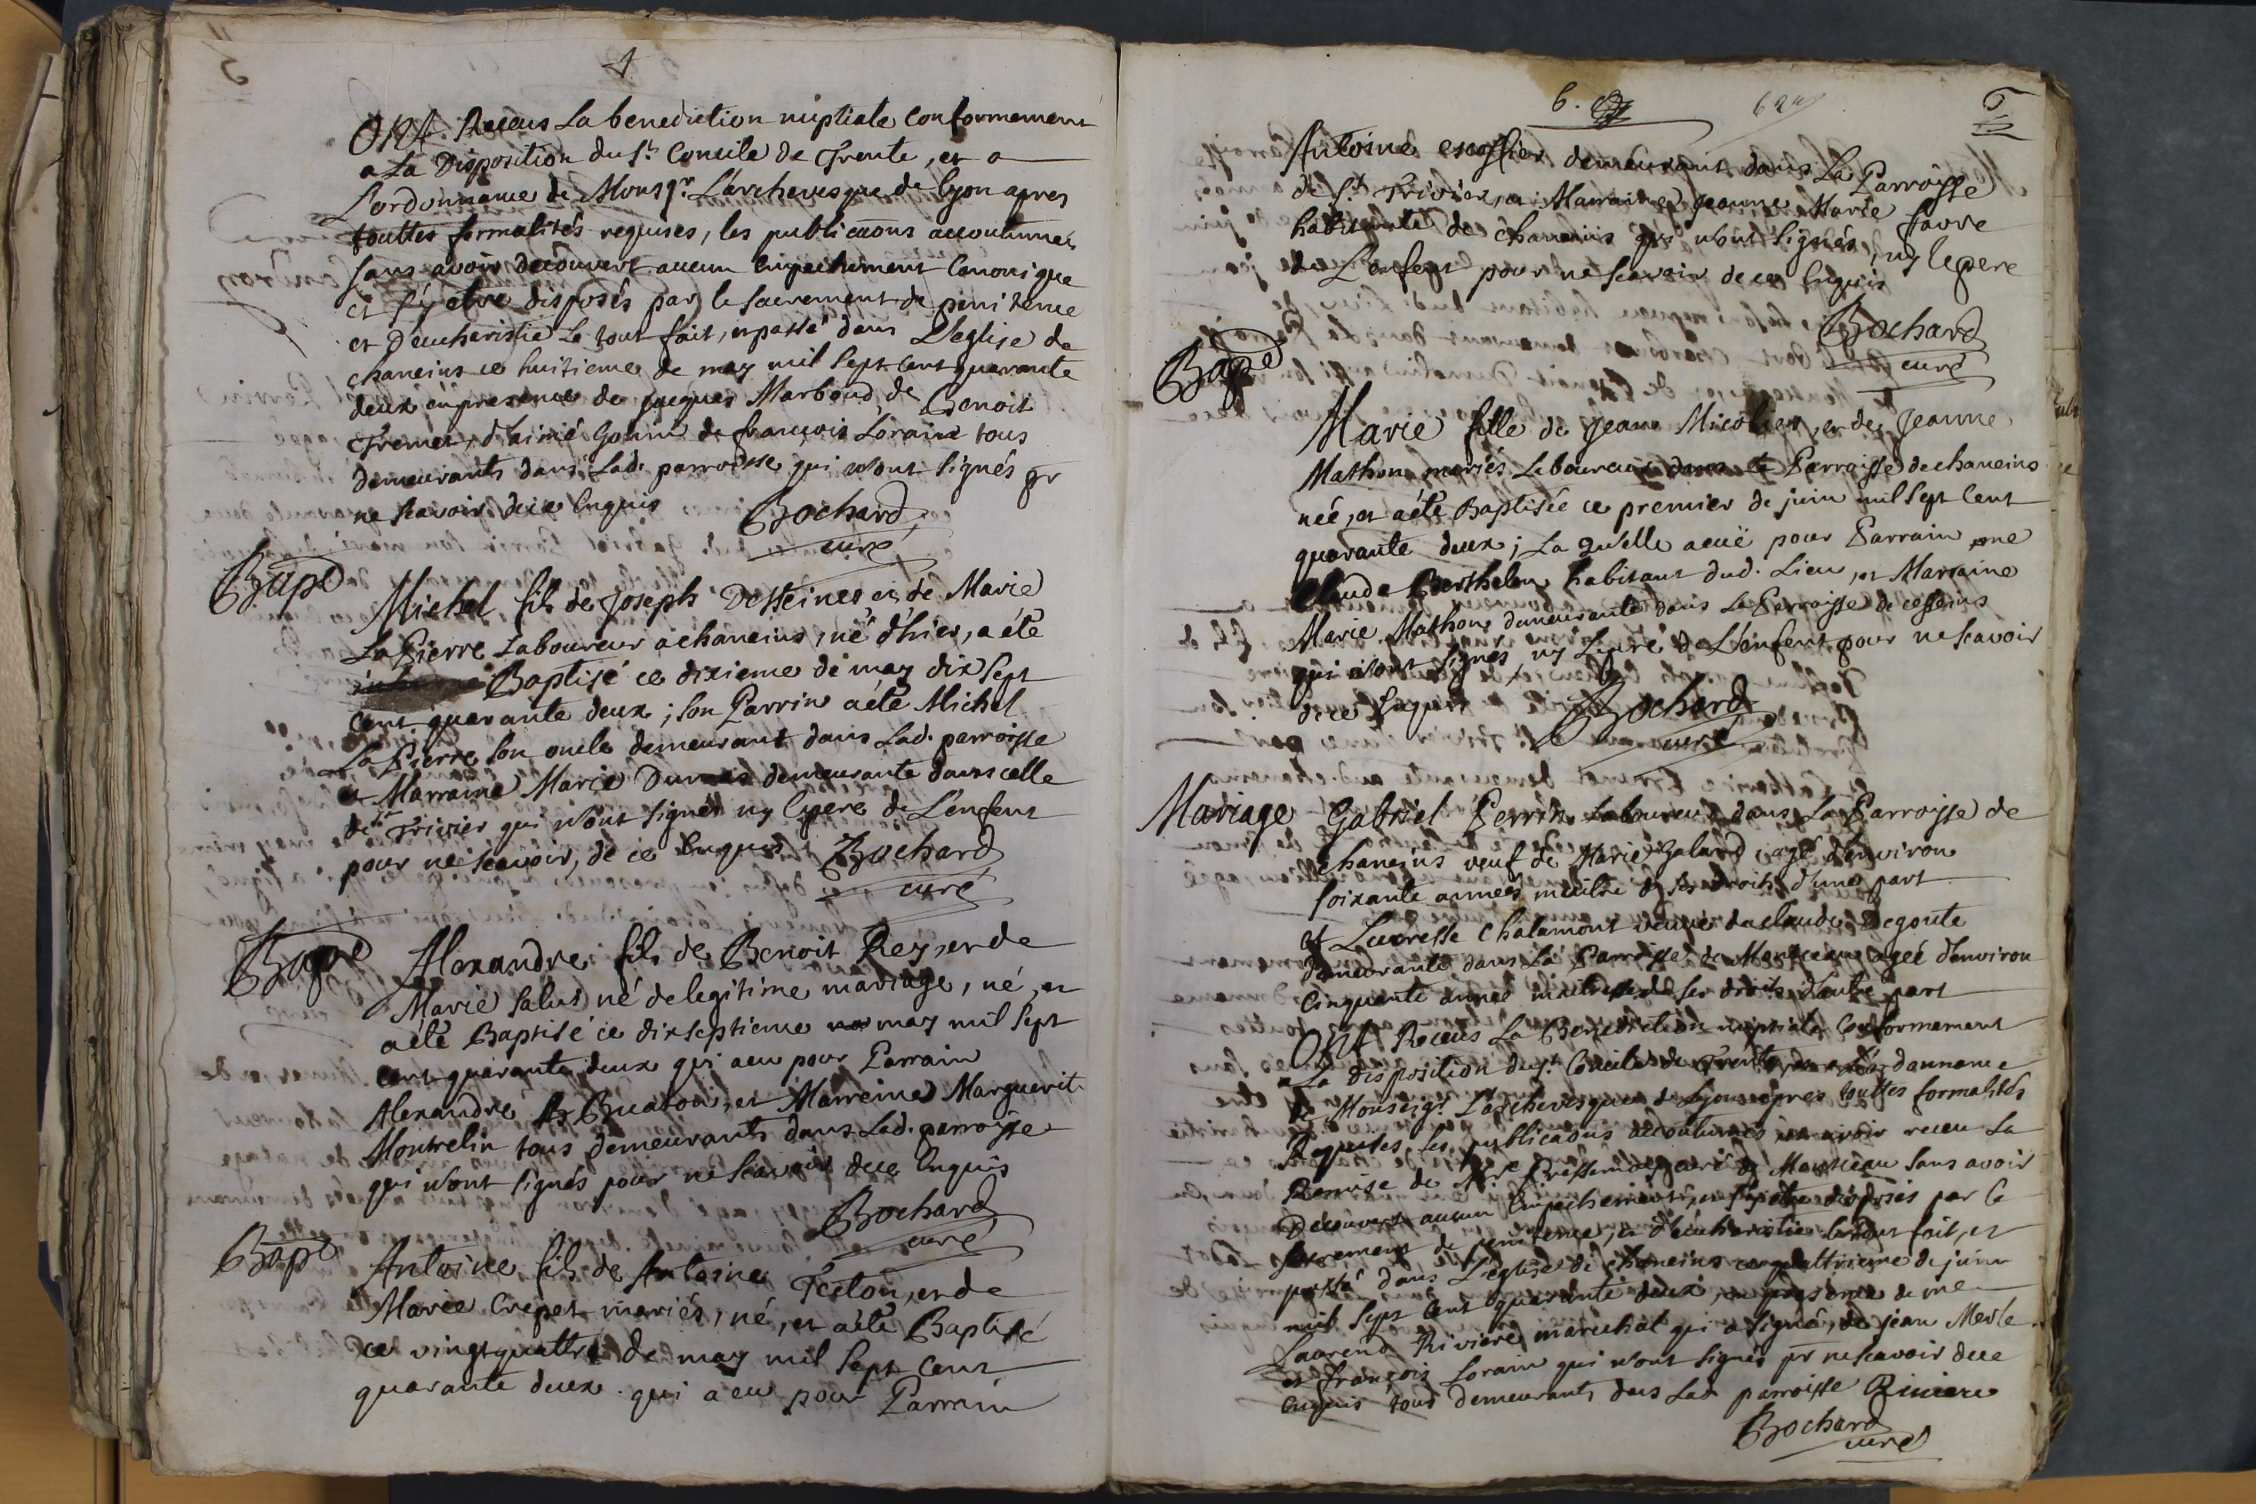 4
ONt Receus La benediction nuptiale Conformement
a La Disposition du St. Concile de Trente, et a
L'ordonnance de Monsgr. L'archevesque de Lyon apres
touttes formalités requises, les publicaons accoutumées
sans avoir decouvert aucun Empechement Canonique
et s'y etre disposés par le sacrement de penitence
et d'eucharistie Le tout fait, et passé dans L'eglise de
chaneins ce huitieme de may mil sept cent quarante
deux en presence de jacques Marboud, de Benoit
Tremer, d'aimé Gonin de francois Lorain tous
demeurants dans Lad. parroisse qui n'ont signés pr
ne scavoir de ce Enquis Bochard
curé
Bapt
Michel fils de Joseph Desteines et de Marie
La Pierre Laboureur a chaneins, né d'hier, a été
Baptisé ce dixieme de may dix sept
cent quarante deux ; son Parrin a été Michel
La Pierre son oncle demeurant dans Lad. parroisse
et Marraine Marie Dumas demeurante dans celle
de St Trivier qui n'ont signés ny le pere de L'enfent
pour ne scavoir, de ce Enquis Bochard
curé
Bapt
Alexandre fils de Benoit Rey, et de
Marie Salus né de legitime mariage, né, et
a été Baptisé ce dixseptieme may mil sept
cent quarante deux qui a eu pour Parrain
Alexandre Buaton, et Marreine Marguerit
Montrelin tous demeurants dans Lad. parroisse
qui n'ont signés pour ne scavoir de ce Enquis
Bochard
curé
Bapt
Antoine fils de Antoine Feiton, et de
Marie Crepet mariés, né, et a été Baptisé
ce vingtquattre de may mil sept cent
quarante deux qui a eu pour Parrain
6.
5
Antoine escoffier demeurant dans La Parroisse
de St. Trivier, et Marraine Jeanne Marie favre
habitante de chaneins qui n'ont signés, ny le pere
de L'enfent pour ne scavoir de ce Enquis
Bochard
curé
Bapt
Marie fille de Jean Micolier, et de Jeanne
Mathon mariés Laboureur dans La Parroisse de chaneins
née, et a été Baptisée ce premier de juin mil sept cent
quarante deux ; La qu'elle a euë pour Parrain me
Claude Berthelon habitant dud. Lieu, et Marraine
Marie Mathon demeurante dans La Parroisse de cesseins
qui n'ont signes ny Le peré de L'enfent pour ne scavoir
de ce Enquis Bochard
curé
Mariage
Gabriel Perrin Laboureur dans La Parroisse de
chaneins veuf de Marie Galand agé d'environ
soixante années maitre de ses droits d'une part
et Lucresse Chalamont veuve de claude Degoute
demeurante dans La Parroisse de Montceau agée d'environ
Cinquante année maitresse de ses droits d'autre part
ONt Receus La Benediction nuptiale Conformement
a La disposition du St. Concile de Trente, et a L'ordonnance
de Monseigr. L'archevesque de Lyon apres touttes formalités
Requises, les publicaons accoutumées, et avoir receu La
Remise de Mr. curé de Montceau sans avoir
Decouvert aucun Empechement, et s'y etre disposés par Le
sacrement de penitence, et d'eucharistie Le tout fait, et
passé dans L'eglise de chaneins ce quattrieme de juin
mil sept cent quarante deux, en presence de me
Laurend Riviere marechal qui a signé, de jean Merle
et françois Lorain qui n'ont signés pr ne scavoir de ce
Enquis tous demeurants dans Lad. parroisse Riviere
Bochard
curé